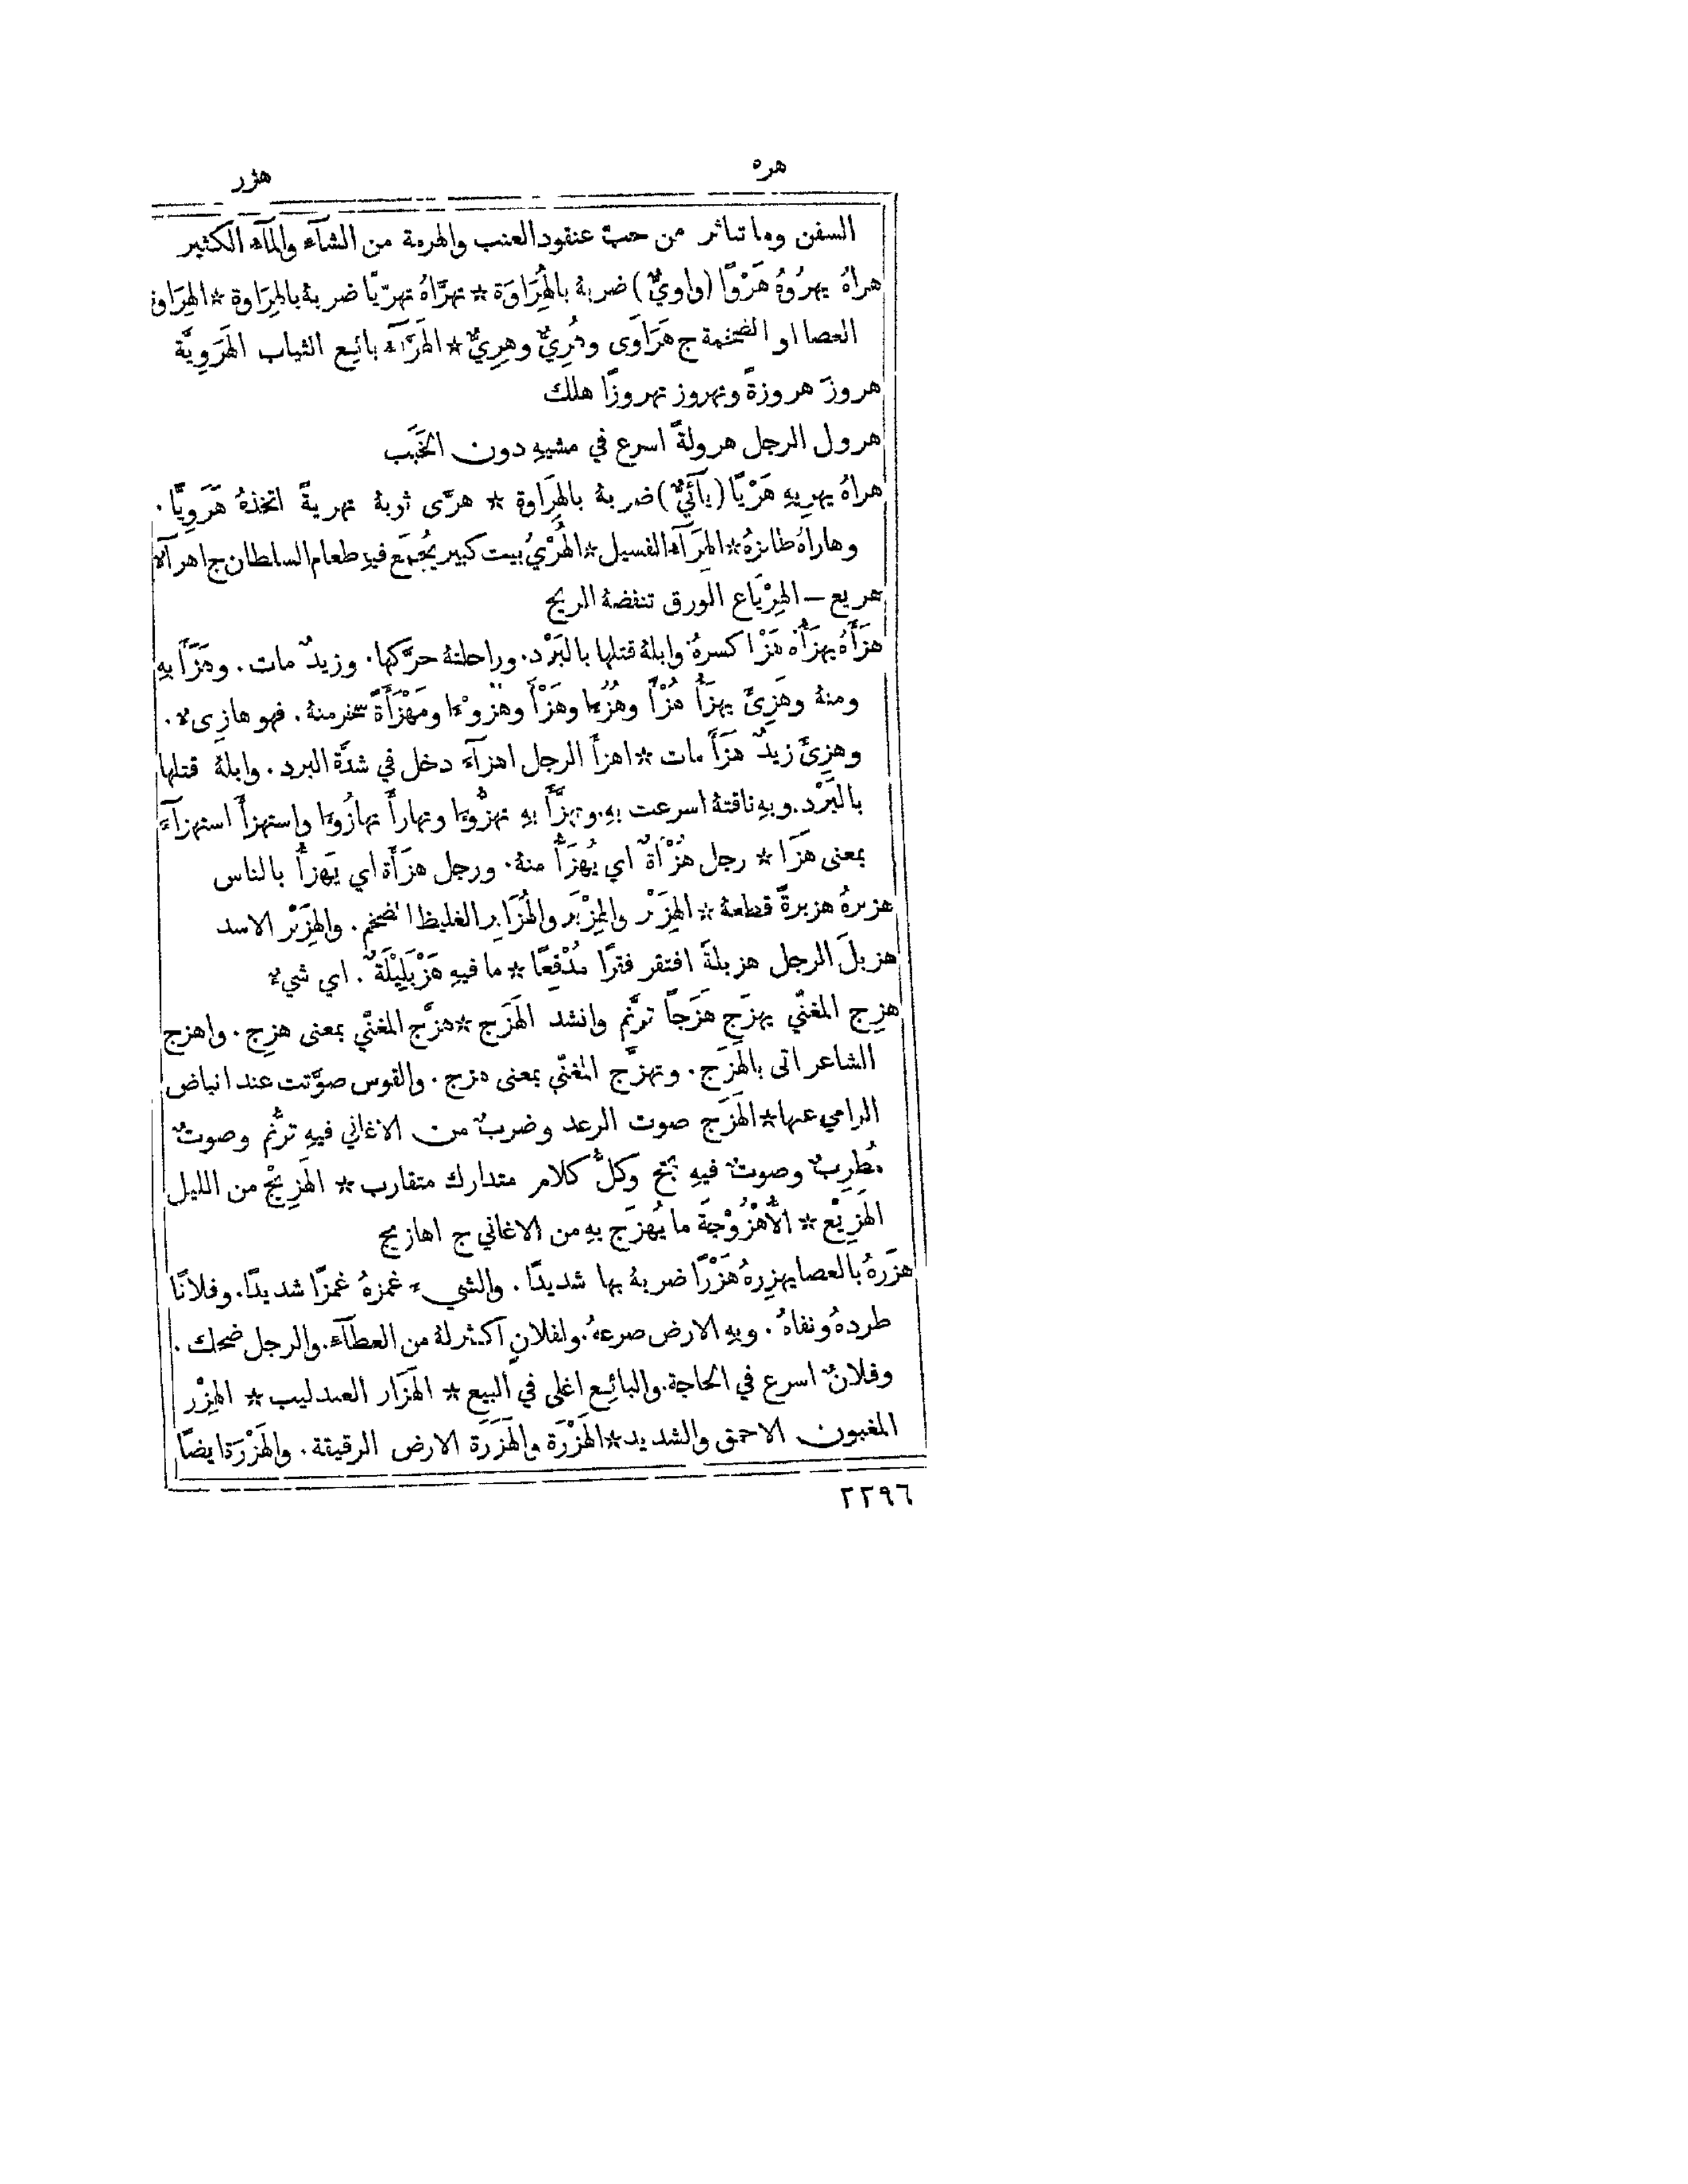 هره هزر
السفن وما تناثر من حبّ عنقود العنب والهرمة من الشآء والمآء الكثير
هراهُ يهرُوُهُ هَرْوًا (واويٌّ) ضربهُ بالهِرَاوَة * تهرَّاهُ تهرّيًا ضربهُ بالهِرَاوة * الهِرَاوة
العصا او الضخمة ج هَرَاوَى وهُرِيٌّ وهِرِيٌّ * الهَرَّآء بائِع الثياب الهَرَوِيَّة
هروزَ هروزةً وتهروز تهروزًا هلك
هرول الرجل هرولةً اسرع في مشيهِ دون الخَبَب
هراهُ يهرِيهِ هَرْيًا (يآئيٌّ) ضربهُ بالهِرَاوة * هرَّى ثوبهُ تهريةً اتخذهُ هَرَوِيًّا .
وهاراهُ طانزهُ * الهِرَآء الفسيل * الهُرْيُ بيت كبير يُجمَع فيهِ طعام السلطان ج اهرآء
هريع – الهِرْيَاع الورق تنفضهُ الريح
هَزَأَهُ يهزَأُهُ هَزْأ كسرهُ . وابلهُ قتلها بالبَرْد . وراحلتهُ حرَّكها . وزيدٌ مات . وهَزَأ بهِ
ومنهُ وهَزِئَ يهزَأُ هُزْأً وهُزُءًا وهَزْأً وهُزُوْءًا ومَهْزَأَةً سخر منهُ . فهو هازِىءٌ .
وهزِئَ زيدٌ هَزَأً مات * اهزأَ الرجل اهزآءً دخل في شدَّة البرد . وابلهُ قتلها
بالبَرْد . وبهِ ناقتهُ اسرعت بهِ . وتهزَّأَ بهِ تهزُّوءًا وتهازأَ تهازُوءًا واستهزأَ استهزآءً
بمعنى هَزَأ * رجل هُزْأَةٌ اي يُهزَأُ منهُ . ورجل هُزَأَة اي يَهزأُ بالناس
هزبرهُ هزبرةً قطعهُ * الهِزَبْر والهِزْبَر والهُزَابِر الغليظ الضخم . والهِزَبْر الاسد
هزبلَ الرجل هزبلةً افتقر فقرًا مُدْقِعًا * ما فيهِ هَزْبَلِيْلَةٌ . اي شيءٌ
هزِج المغنّي يهزَج هَزَجًا ترنَّم وانشد الهَزَج * هزَّج المغنّي بمعنى هزِج . واهزج
الشاعر اتى بالهَزَج . وتهزَّج المغنّي بمعنى هزج . والقوس صوَّتت عند انباض
الرامي عنها * الهَزَج صوت الرعد وضربٌ من الاغاني فيهِ ترنُّم وصوتٌ
مُطرِبٌ وصوتٌ فيهِ بَحّ وكلُّ كلامٍ متدارك متقارب * الهَزِيْج من الليل
الهَزِيْع * الأُهْزُوْجَة ما يُهزَج بهِ من الاغاني ج اهازيج
هزَرهُ بالعصا يهزِرهُ هَزْرًا ضربهُ بها شديدًا . والشيءَ غمزهُ غمزًا شديدًا . وفلانًا
طردهُ ونفاهُ . وبهِ الارض صرعهُ . ولفلانٍ اكثر لهُ من العطآء . والرجل ضحك .
وفلانٌ اسرع في الحاجة . والبائِع اغلى في البيع * الهَزَار العندليب * الهِزْر
المغبون الاحمق والشديد * الهَزْرَة والهَزَرَة الارض الرقيقة . والهَزْرَة ايضًا
٢٢٩٦